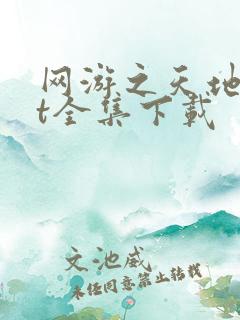 网游之天地
t全集下载
文池威
未经同意禁止转载